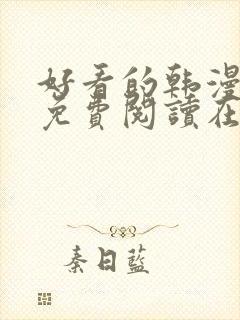 好看的韩漫
免費閱讀在
秦日藍